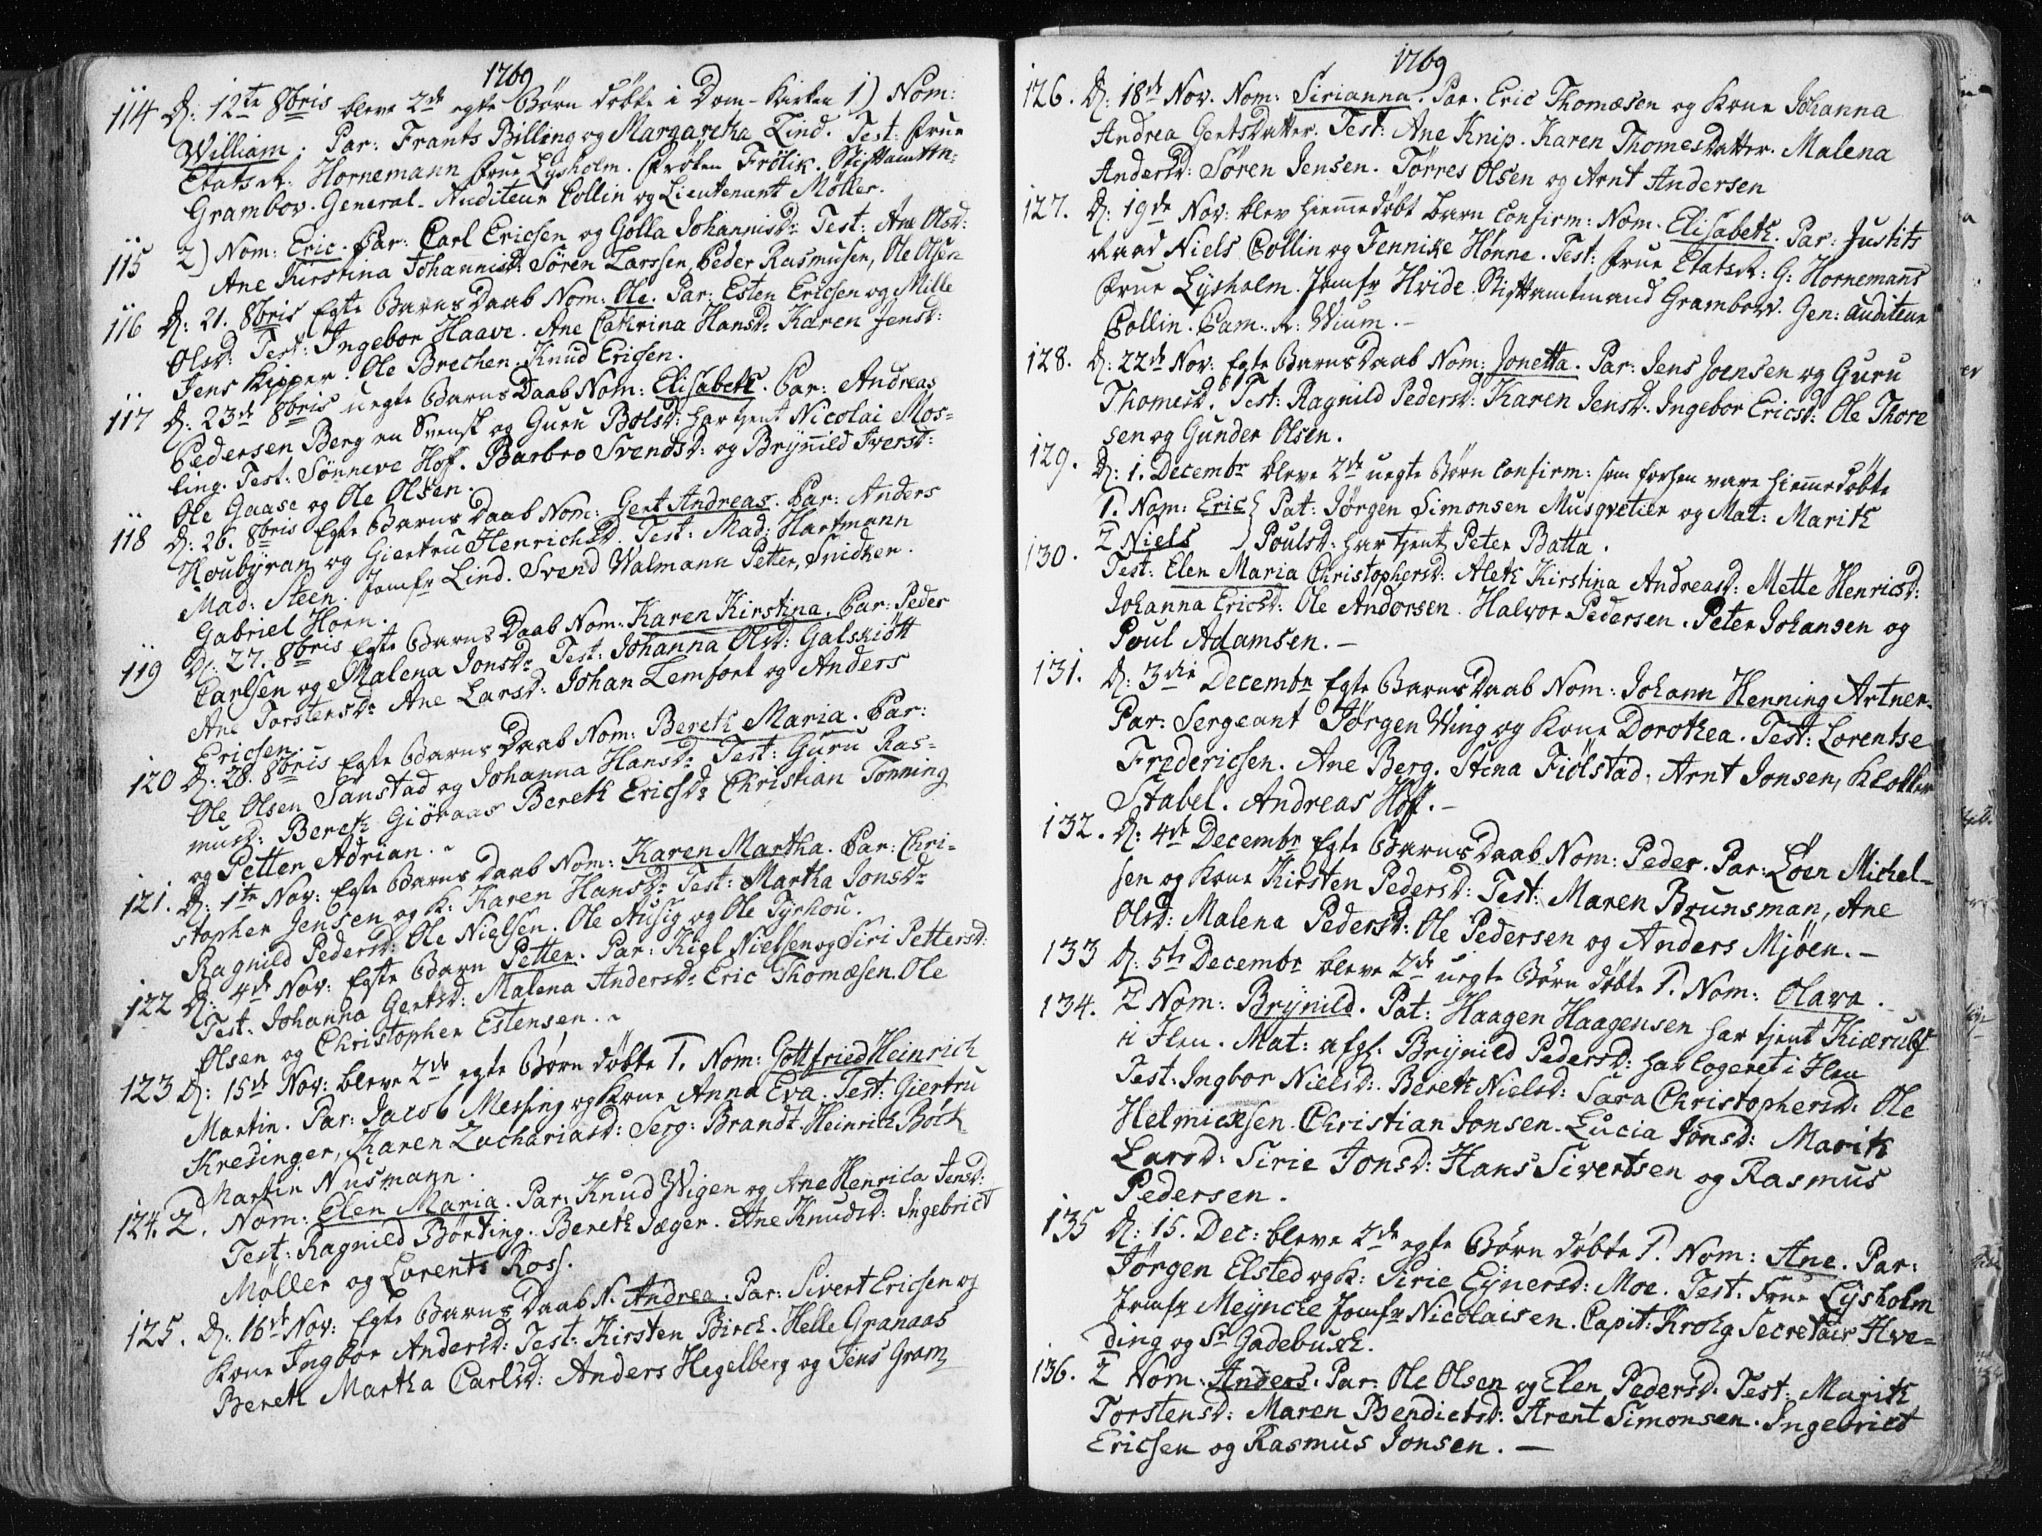 1769
114 D: 12te 8bris bleve 2de egte Børn døbte i Dom-Kirken 1) Nom:
William. Par: Frants Billing og Margaretha Lind. Test: Frue
Etatsr: Hornemann Frue Lysholm. Frøken Frølik. Stiftamtm:
Grambov. General-Auditeur Collin og Lieutenant Møller.
115 2) Nom: Eric. Par: Carl Ericsen og Golla Johannisd: Test: Ane Olsd:
Ane Kirstina Johannisd: Søren Larssen, Peder Rasmusen, Ole Olsen
116 D: 21. 8bris Egte Barns Daab Nom: Ole. Par: Esten Ericsen og Mille
Olsd: Test: Ingebor Haave. Ane Cathrina Hansd: Karen Jensd:
Jens Kipper. Ole Brechen. Knud Ericsen.
117 D: 23de 8bris uegte Barns Daab Nom: Elisabeth. Par: Andreas
Pedersen Berg en Svensk og Guru Bolsd: har tient Nicolai Mos-
ling. Test: Sønneve Hof. Barbro Svendsd: og Brynild Iversd:
Ole Gaase og Ole Olsen.
118 D: 26. 8bris Egte Barns Daab Nom: Gert Andreas. Par: Anders
Houbyran og Giertru Henrichsd. Test: Mad: Hartmann
Mad: Steen. Jomfr Lind. Svend Walmann Petter, Snidker.
Gabriel Horn.
119 D: 27. 8bris Egte Barns Daab Nom: Karen Kirstina. Par: Peder
Carlsen og Malena Jonsd: Test: Johanna Olsd: Galskiøtt
Ane Torstensd: Ane Larsd: Johan Lemfort og Anders
Ericsen.
120 D: 28. 8bris Egte Barns Daab Nom: Bereth Maria. Par:
Ole Olsen Sanstad og Johanna Hansd: Test: Guru Ras-
musd: Bereth Giøraas Bereth Ericsd: Christian Tønning
og Petter Adrian.
121. D: 1te Nov: Egte Barns Daab Nom: Karen Martha. Par: Chri-
stopher Jensen og K: Karen Hansd: Test: Martha Jonsd:
Ragnild Pedersd: Ole Nielsen. Ole Ausig og Ole Pyrhou.
122 D: 4de Nov: Egte Barn Petter. Par: Kiel Nielsen og Siri Pettersd:
Test. Johanna Gertsd: Malena Andersd: Eric Thomæsen. Ole
Olsen og Christopher Estensen.
123 D: 15de Nov: bleve 2de egte Børn døbte 1. Nom: Gottfried Heinrich
Martin. Par: Jacob Messing og Kone Anna Eva. Test: Giertru
Kresinger, Karen Zachariasd: Serg: Brandt. Heinrich Bock
Martin Nusmann.
124. 2. Nom: Elen Maria. Par: Knud Wigen og Ane Henrica Jensd:
Test: Ragnild Børting. Bereth Jæger. Ane Knudsd: Ingebrict
Møller og Lorents Ross.
125. D: 16de Nov: Egte Barns Daab N. Andrea. Par: Sivert Ericsen og
Kone Ingbor Andersd: Test: Kirsten Birch. Helle Granaas
Bereth Martha Carlsd: Anders Hegelberg og Jens Gram
1769
126. D: 18de Nov. Nom: Sirianna. Par. Eric Thomæsen og Kone Johanna
Andrea Gertsdatter. Test: Ane Knip. Karen Thomesdatter. Malena
Andersd: Søren Jensen. Tørres Olsen og Arnt Andersen
127. D: 19de Nov: blev hiemmedøbt Barn Confirm: Nom. Elisabeth. Par: Justits
Raad Niels Collin og Jennike Hønne. Test: Frue Etatsr: G: Hornemanns
Frue Lysholm. Jomfr Hvide. Stiftamtmand Grambow. Gen: Auditeur
Collin. Cam: R: Wium.
128. D: 22de Nov: Egte Barns Daab Nom: Jonetta. Par: Jens Joensen og Guru
Thomesd. Test: Ragnild Pedersd: Karen Jensd. Ingebor Ericsd: Ole Thore
sen og Gunder Olsen.
129. D: 1. Decembr bleve 2de uegte Børn Confirm: som forhen vare hiemmedøbte
1. Nom: Eric } Pat: Jørgen Simonsen Musqvetier og Mat: Marith
130. 2 Niels } Poulsd: har tjent Peter Batta.
Test: Elen Maria Christophersd: Aleth Kirstina Andreasd: Mette Henricsd:
Johanna Ericsd: Ole Andorsen. Halvor Pedersen. Peter Johansen og
Poul Adamsen.
131. D: 3die Decembr Egte Barns Daab Nom: Johann Henning Artner.
Par: Sergeant Jørgen Wing og Kone Dorothea. Test: Lorentse
Fredericsen. Ane Berg. Stina Fiølstad. Arnt Jonsen, Klokker
Stabel. Andreas Hoff.
132. D: 4de Decembr Egte Barns Daab Nom: Peder. Par: Løen Michel-
sen og Kone Kirsten Pedersd: Test: Maren Brunsman, Ane
Olsd: Malena Pedersd: Ole Pedersen og Anders Mjøen.
133 D: 5te Decembr bleve 2de uegte Børn døbte 1. Nom: Olava.
134. 2 Nom: Brynild. Pat: Haagen Haagensen har tjent Kiærulf
i Ilen. Mat: afgl. Brynild Pedersd: har logeret i Ilen
Test: Ingbor Nielsd: Bereth Nielsd: Sara Christophersd: Ole
Helmicksen. Christian Jonsen. Lucia Jonsd: Marith
Larsd: Sirie Jonsd: Hans Sivertsen og Rasmus
Pedersen.
135 D: 15. Dec: bleve 2de egte Børn døbte 1. Nom: Ane. Par:
Jørgen Elsted og K: Sirie Eynersd: Moe. Test: Frue Lysholm
Jomfr Meyncke Jomfr Nicolaisen. Capit: Krohg Secretair Hve-
ding og Sr Gadebusch.
136. 2 Nom. Anders. Par: Ole Olsen og Elen Pedersd. Test: Marith
Torstensd: Maren Bendictsd: Arent Simonsen. Ingebrict
Ericsen og Rasmus Jonsen.